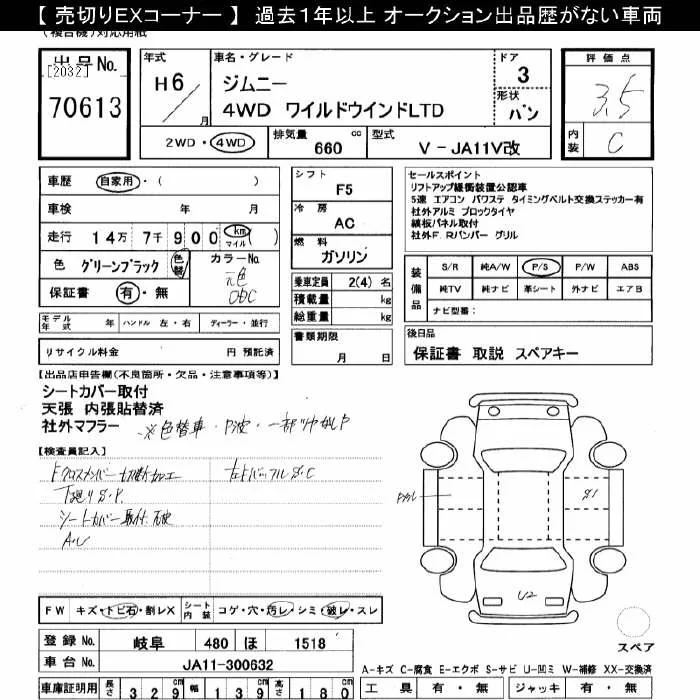 【 売切りEXコーナー 】 過去1年以上 オークション出品歴がない車両
(複合機)対応用紙
出品No.
[2032]
70613
年式
H6/
月
車名・グレード
ジムニー
4WD ワイルドウインドLTD
ドア
3
形状
バン
評価点
3.5
内装
C
2WD・4WD
排気量
660
cc
型式
V-JA11V改
車歴 自家用・( )
車検 年 月
走行 14万 7千 900 km マイル ( )
色 グリーンブラック 色替 カラーNo. 元色 0BC
保証書 有・無
シフト
F5
冷房
AC
燃料
ガソリン
乗車定員 2(4) 名
積載量 kg
総重量 kg
セールスポイント
リフトアップ緩衝装置公認車
5速 エアコン パワステ タイミングベルト交換ステッカー有
社外アルミ ブロックタイヤ
縞板パネル取付
社外F.Rバンパー グリル
装備品
S/R 純A/W P/S P/W ABS
純TV 純ナビ 革シート 外ナビ エアB
ナビ型番:
モデル年式 年 ハンドル 左・右 ディーラー・並行
書類期限
月 日
後日品
保証書 取説 スペアキー
リサイクル料金 円 預託済
【出品店申告欄(不良箇所・欠品・注意事項等)】
シートカバー取付
天張 内張貼替済
社外マフラー
※色替車・P波・一部ツヤなしP
【検査員記入】
Fクロスメンバー切断加工
下廻りS.P.
シートカバー取付
A.U
S.C
S1
U2
FW キズ・トビ石・割レX シート内装 コゲ・穴・汚レ・シミ・破レ・スレ
登録No. 岐阜 480 ほ 1518
車台No. JA11-300632
スペア
A-キズ C-腐食 E-エクボ S-サビ U-凹ミ W-補修 XX-交換済
車庫証明用 長さ 329 幅 139 高さ 180
工具 有・無 ジャッキ 有・無